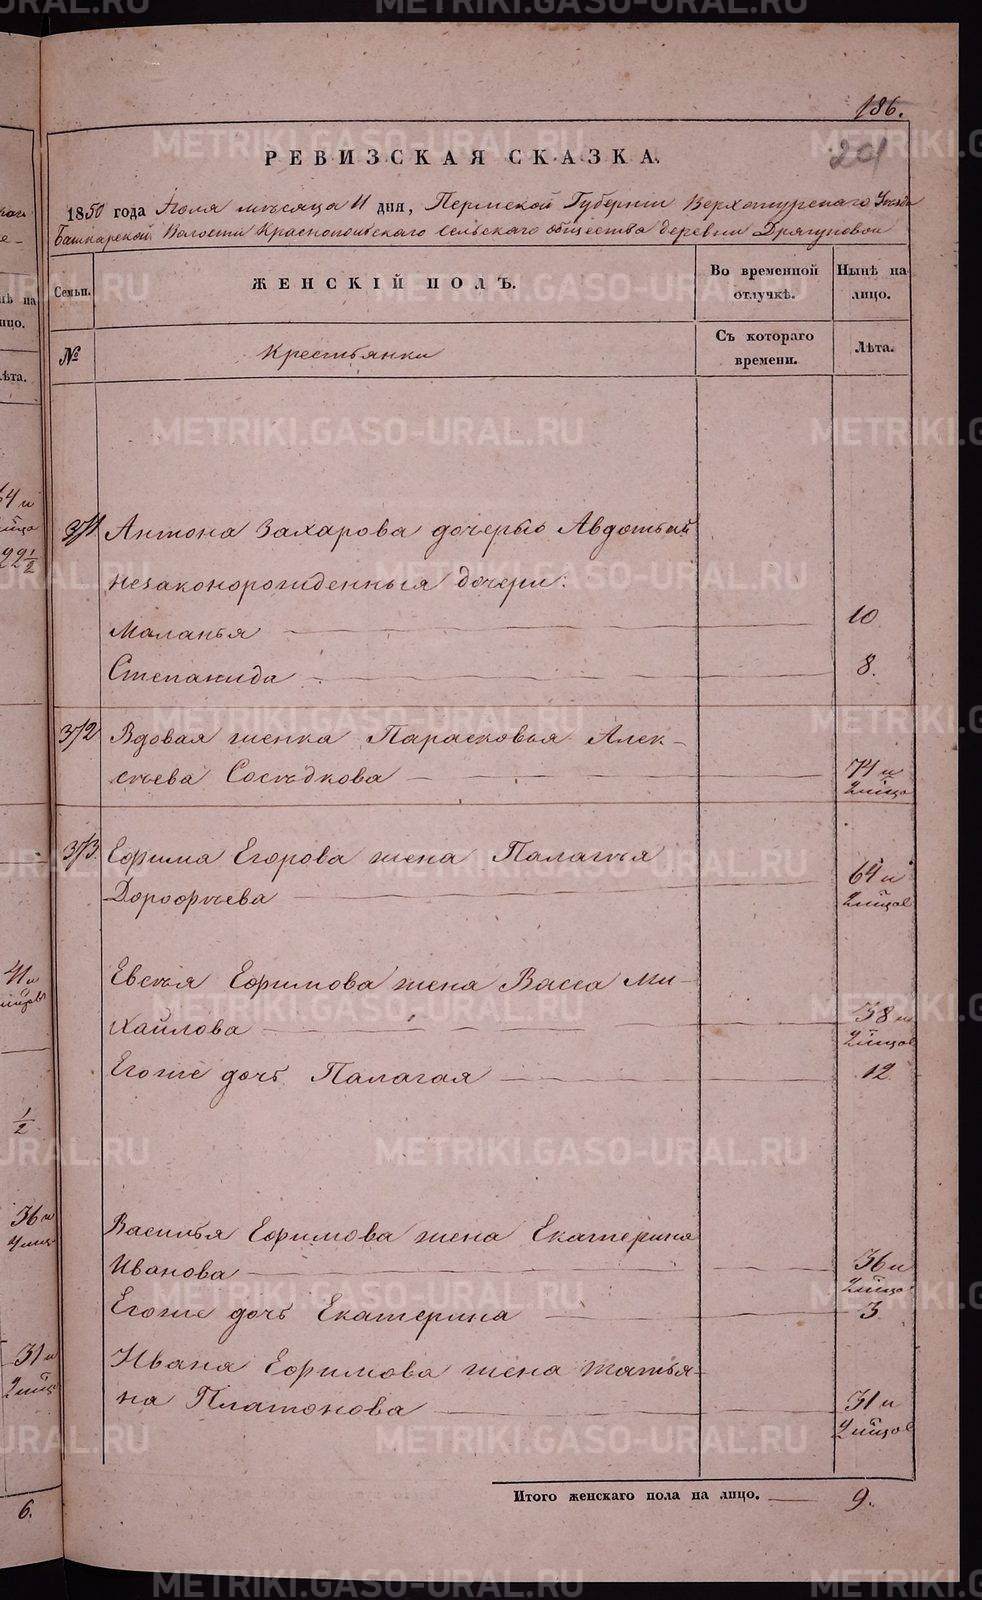 186.
201
РЕВИЗСКАЯ СКАЗКА.
1850 года Іюля мѣсяца 11 дня, Пермской Губерніи Верхотурскаго Уезда
Башкарской Волости Краснопольскаго сельскаго общества деревни Дрягуновой
Семьи.
ЖЕНСКІЙ ПОЛЪ.
Во временной отлучкѣ.
Нынѣ на лицо.
№
Крестьянки
Съ котораго времени.
Лѣта.
Антона Захарова дочерью Авдотьей
незаконорожденныя дочери:
Маланья 10
Степанида 8.
Вдовая женка Парасковья Алек-
сѣева Сосѣдкова 74 и
Ефима Егорова жена Палагѣя
Дорофѣева 64 и
Евсѣя Ефимова жена Васса Ми-
хайлова 38 и
Егоже дочь Палагая 12
Василья Ефимова жена Екатерина
Иванова 36 и
Егоже дочь Екатерина 3
Ивана Ефимова жена Татья-
на Платонова 31 и
Итого женскаго пола на лицо. 9.
6.
METRIKI.GASO-URAL.RU